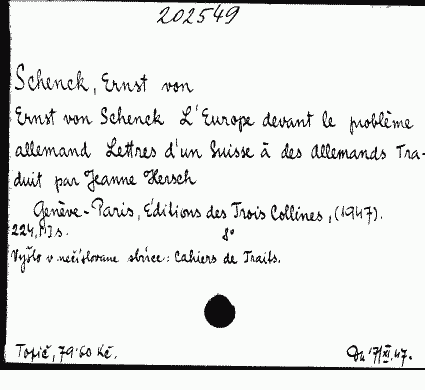 202549
Schenck, Ernst von
Ernst von Schenck L'Europe devant le problème
allemand Lettres d'un Suisse à des Allemands Tra-
duit par Jeanne Hersch
Genève-Paris, Éditions des Trois Collines, (1947).
224, s. 8°
Vyšlo v nečíslované sbírce: Cahiers de Traits.
Topič, 79·60 Kč. 47.